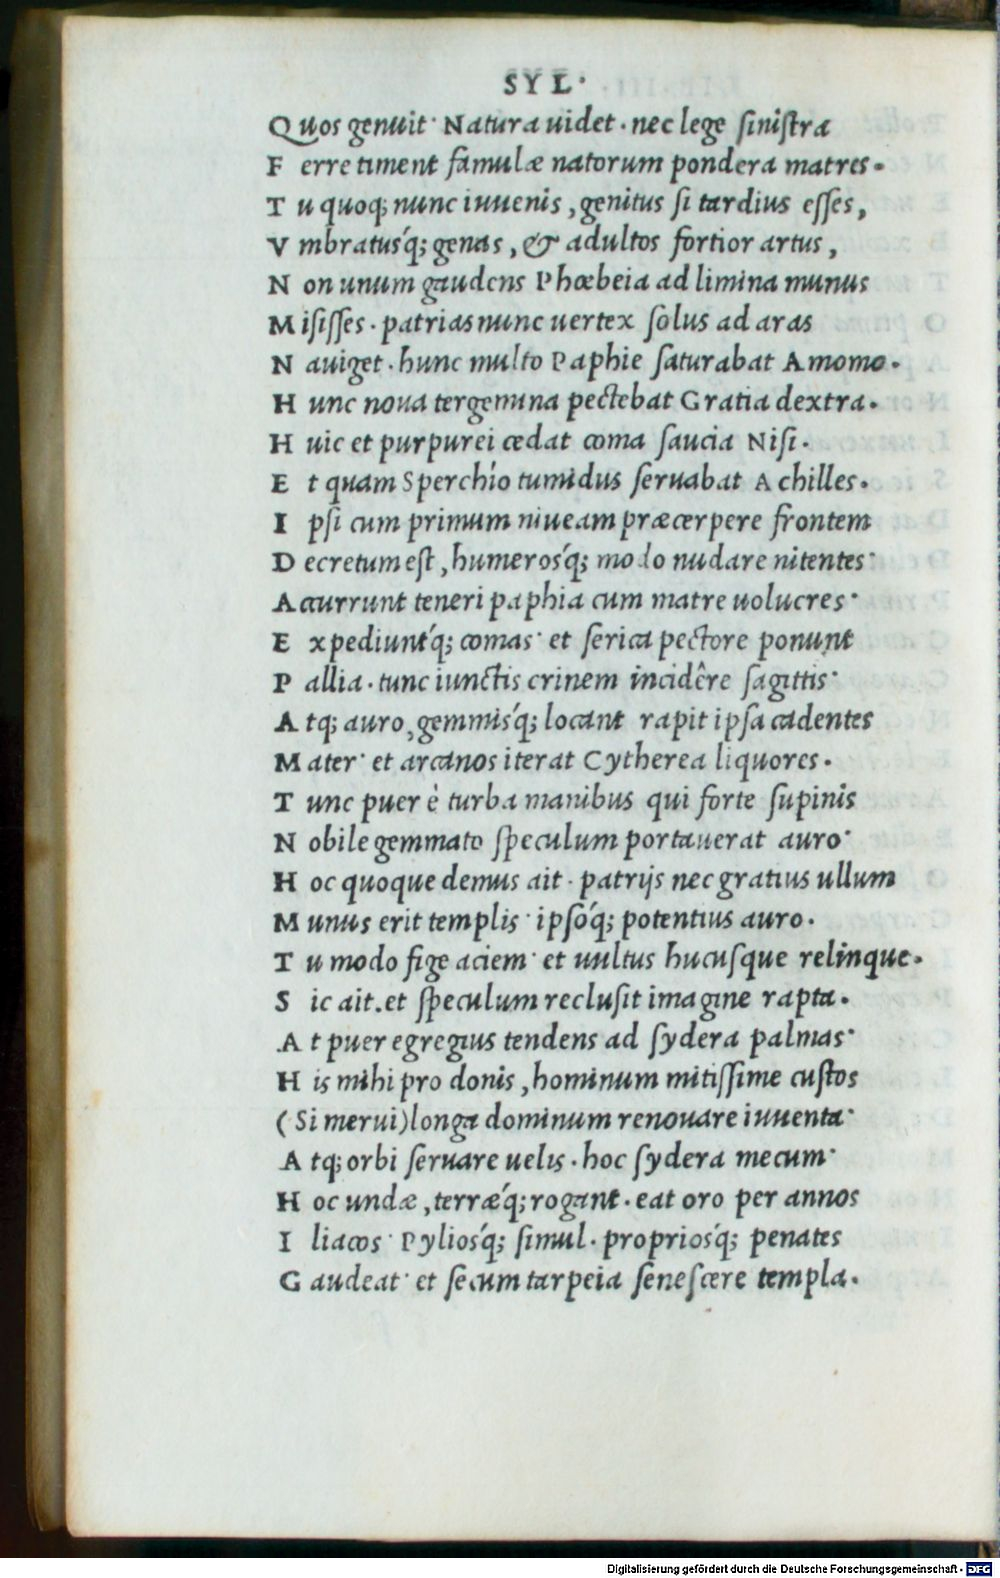 SYL·
Quos genuit· Natura uidet· nec lege sinistra
Ferre timent famulæ natorum pondera matres·
Tu quoq; nunc iuuenis, genitus si tardius esses,
Vmbratusq́; genas, & adultos fortior artus,
Non unum gaudens Phœbeia ad limina munus
Misisses· patrias nunc uertex solus ad aras
Nauiget· hunc multo Paphie saturabat Amomo·
Hunc noua tergemina pectebat Gratia dextra·
Huic et purpurei cedat coma saucia Nisi·
Et quam Sperchio tumidus seruabat Achilles·
Ipsi cum primum niueam præcerpere frontem
Decretum est, humerosq́; modo nudare nitentes·
Accurrunt teneri paphia cum matre uolucres·
Expediuntq́; comas· et serica pectore ponunt
Pallia· tunc iunctis crinem incidêre sagittis·
Atq; auro, gemmisq́; locant rapit ipsa cadentes
Mater· et arcanos iterat Cytherea liquores·
Tunc puer è turba manibus qui forte supinis
Nobile gemmato speculum portauerat auro·
Hoc quoque demus ait· patrijs nec gratius ullum
Munus erit templis· ipsoq́; potentius auro·
Tu modo fige aciem· et uultus hucusque relinque·
Sic ait. et speculum reclusit imagine rapta·
At puer egregius tendens ad sydera palmas·
His mihi pro donis, hominum mitissime custos
(Si merui) longa dominum renouare iuuenta·
Atq; orbi seruare uelis· hoc sydera mecum·
Hoc undæ, terræq́; rogant· eat oro per annos
Iliacos· Pyliosq́; simul· propriosq́; penates
Gaudeat· et secum tarpeia senescere templa·
Digitalisierung gefördert durch die Deutsche Forschungsgemeinschaft · DFG